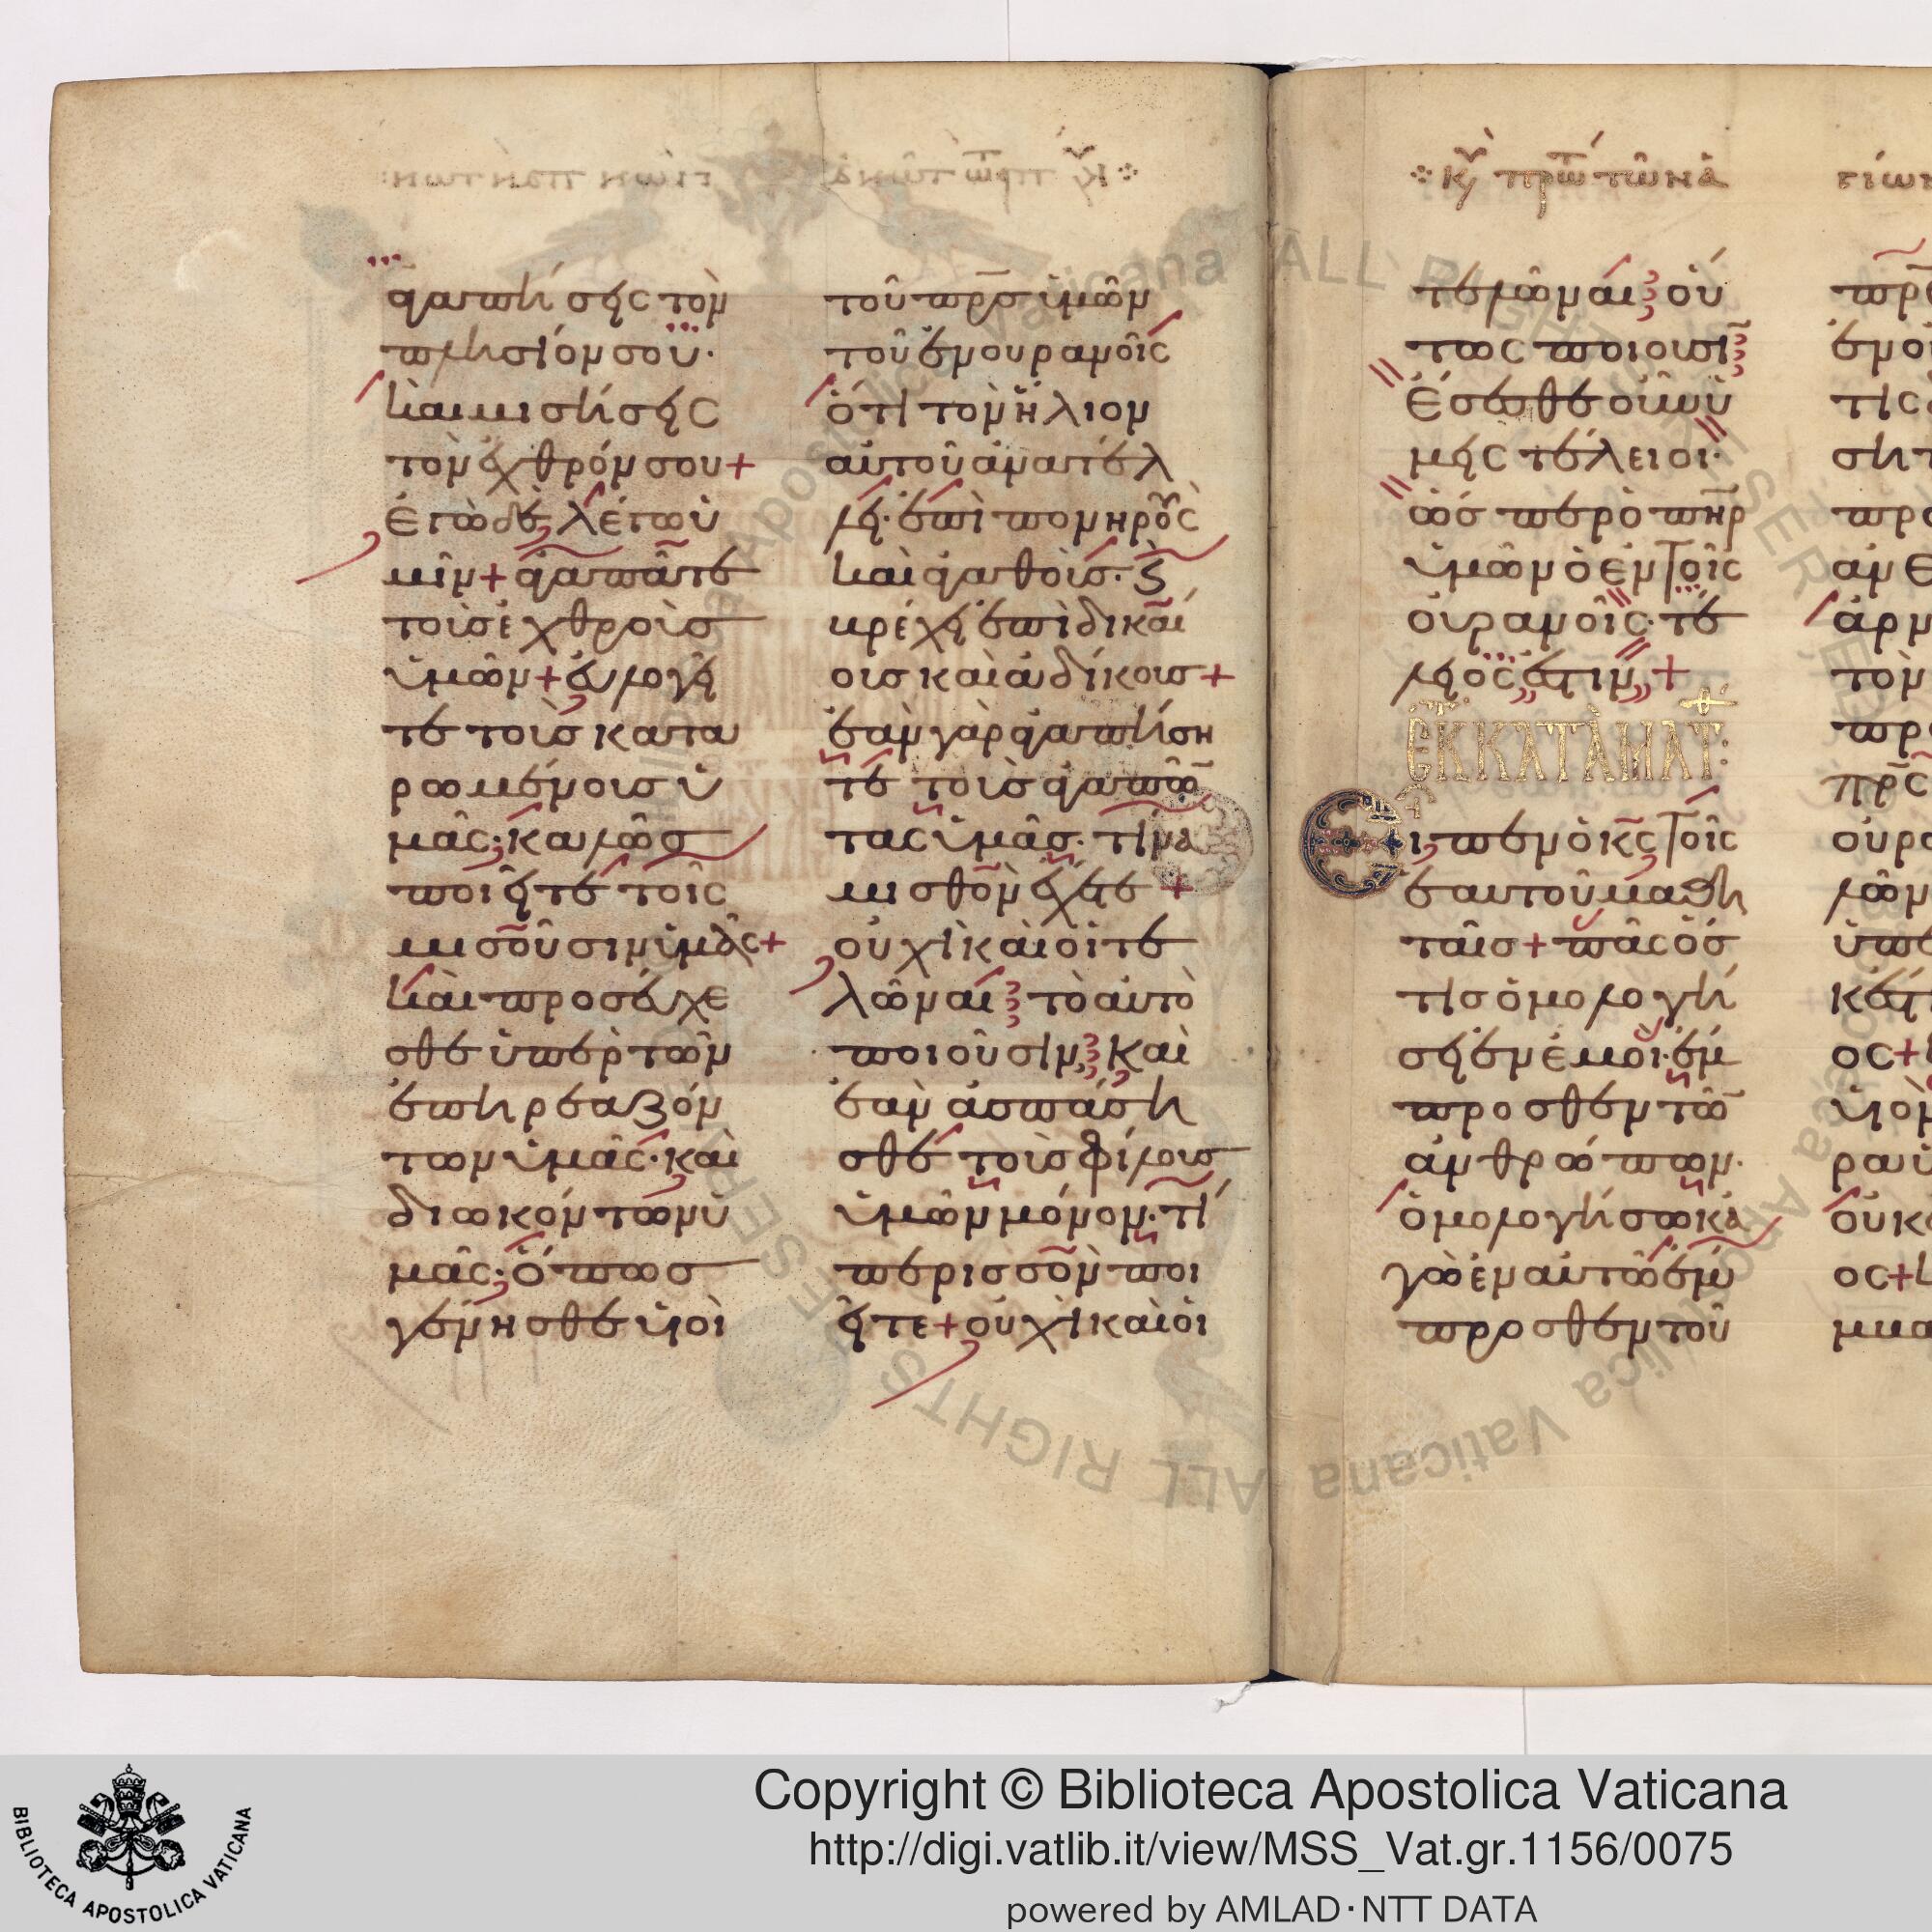 ἀγαπήσεις τὸν
πλησίον σου·
καὶ μισήσεις
τὸν ἐχθρόν σου+
ἐγὼ δὲ λέγω ὑ
μῖν+ ἀγαπᾶτε
τοὺς ἐχθροὺς
ὑμῶν+ εὐλογεῖ
τε τοὺς κατα
ρωμένους ὑ
μᾶς· καλῶς
ποιεῖτε τοῖς
μισοῦσιν ὑμᾶς+
καὶ προσεύχε
σθε ὑπὲρ τῶν
ἐπηρεαζόν
των ὑμᾶς· καὶ
διωκόντων ὑ
μᾶς· ὅπως
γένησθε υἱοὶ
τοῦ πρσ ὑμῶν
τοῦ ἐν οὐρανοῖς
ὅτι τὸν ἥλιον
αὐτοῦ ἀνατέλ
λει· ἐπὶ πονηροὺς
καὶ ἀγαθούς· ϗ
βρέχει ἐπὶ δικαί
ους καὶ ἀδίκους+
ἐὰν γὰρ ἀγαπήση
τε τοὺς ἀγαπῶ
τας ὑμᾶς· τίνα
μισθὸν ἔχετε+
οὐχὶ καὶ οἱ τε
λῶναι τὸ αὐτὸ
ποιοῦσιν, καὶ
ἐὰν ἀσπάση
σθε τοὺς φίλους
ὑμῶν μόνον· τί
περισσὸν ποι
εῖτε+ οὐχὶ καὶ οἱ
※ κυ πρω τῶν ἁ
γίων
τελῶναι οὕ
τως ποιοῦσι
ἔσεσθε οὖν ὑ
μεῖς τέλειοι·
ὥσπερ ὁ πηρ
ὑμῶν ὁ ἐν τοῖς
οὐρανοῖς· τέ
λειός ἐστιν+
ἐκ κατὰ ματ:
Εἶπεν ὁ κς τοῖς
ἑαυτοῦ μαθη
ταῖς+ πᾶς ὅσ
τις ὁμολογή
σει ἐν ἐμοὶ· ἔμ
προσθεν τῶ
ἀνθρώπων·
ὁμολογήσω κἀ
γὼ ἐν αὐτῶ ἔμ
προσθεν τοῦ
Copyright © Biblioteca Apostolica Vaticana
http://digi.vatlib.it/view/MSS_Vat.gr.1156/0075
powered by AMLAD·NTT DATA
BIBLIOTECA APOSTOLICA VATICANA